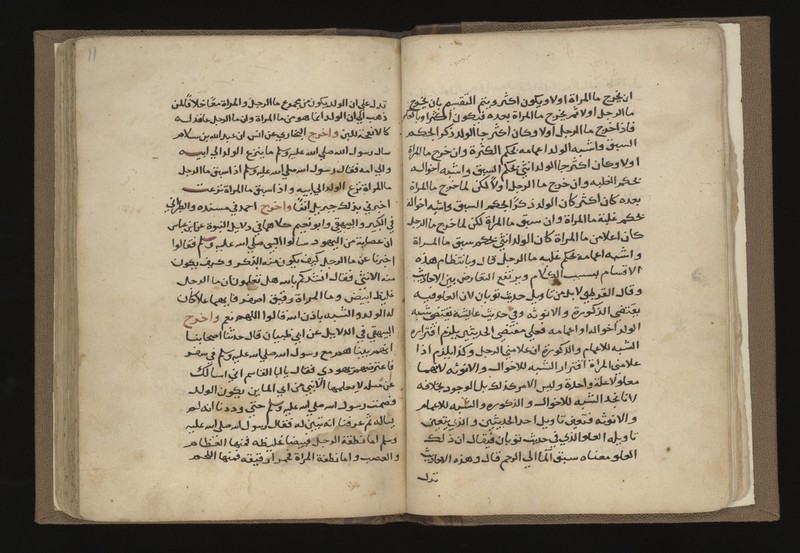 ان يخرج ما المراة اولا ويكون اكثر ويتم التقسيم بان يخرج
ما الرجل اولا ثم يخرج ما المراة بعده فيكون اكثر او بالعكس
فاذا خرج ما الرجل اولا وكان اكثر جا الولد ذكرا بحكم
السبق واشبه الولد اعمامه بحكم الكثرة وان خرج ما المراة
اولا وكان اكثر جا الولد انثى بحكم السبق واشبه اخواله
بحكم الغلبه وان خرج ما الرجل اولا لكن لما خرج ما المراة
بعده كان اكثر كان الولد ذكرا بحكم السبق واشبه اخواله
بحكم غلبة ما المراة وان سبق ما المراة لكن لما خرج ما الرجل
كان اعلا من ما المراة كان الولد انثى بحكم سبق ما المراة
واشبه اعمامه بحكم غلبه ما الرجل قال وبانتظام هذه
الاقسام يستتب الكلام ويرتفع التعارض بين الاحاديث
وقال القرطبي لا بد من تاويل حديث ثوبان لان العلو فيه
يقتضى الذكورة والانوثه وفي حديث عائشة يقتضى شبه
الولد اخواله او اعمامه فعلى مقتضى الحديثين يلزم اقتران
الشبه للاعمام والذكورة ان علا مني الرجل وكذا يلزم اذا
علا مني المراة اقتران الشبه للاخوال والانوثه لانهما
معلولا علة واحدة وليس الامر كذلك بل الوجود بخلافه
لانا نجد الشبه للاخوال والذكورة والشبه للاعمام
والانوثه فتعين تاويل احد الحديثين والذي يتعين
تاويله العلو الذي في حديث ثوبان فيقال ان ذلك
العلو معناه سبق الما الى الرحم قال وهذه الاحاديث
تدل
١١
تدل على ان الولد يكون من مجموع ما الرجل والمراة معا خلافا لمن
ذهب الى ان الولد انما هو من ما المراة وان ما الرجل عاقد له
كالانفحة للبن واخرج البخاري عن انس ان عبد الله بن سلام
سال رسول الله صلى الله عليه وسلم ما ينزع الولد الى ابيه
والى امه فقال رسول الله صلى الله عليه وسلم اذا سبق ما الرجل
ما المراة نزع الولد الى ابيه واذا سبق ما المراة نزعت
اخبرني بذلك جبريل انفا واخرج احمد في مسنده والطبراني
في الكبير والبيهقي وابو نعيم كلاهما في دلايل النبوة عن ابن عباس
ان عصابة من اليهود سالوا النبي صلى الله عليه وسلم فقالوا
اخبرنا عن ما الرجل كيف يكون منه الذكر وكيف يكون
منه الانثى فقال انشدكم بالله هل تعلمون ان ما الرجل
غليظ ابيض وما المراة رقيق اصفر فايهما علا كان
له الولد والشبه باذن الله قالوا اللهم نعم واخرج
البيهقي في الدلايل عن ابي ظبيان قال حدثنا اصحابنا
انهم بينا هم مع رسول الله صلى الله عليه وسلم في سفر
فاعترضهم يهودي فقال يا ابا القاسم اني اسالك
عن مسلة لا يعلمها الا نبي من اي الماين يكون الولد
فصمت رسول الله صلى الله عليه وسلم حتى وددنا انه لم
يساله ثم عرفنا انه تبين له فقال رسول الله صلى الله عليه
وسلم اما نطفة الرجل فبيضا غليظه فمنها العظام
والعصب واما نطفة المراة فحمرا رقيقه فمنها اللحم